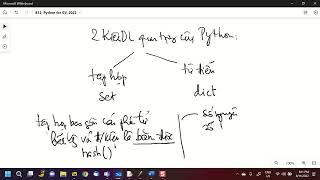 Microsoft Whiteboard
B12, Python for GV, 2022
2 kiểu DL quan trọng của Python:
tập hợp
từ điển
set
dict
tập hợp bao gồm các phần tử
bất kỳ và đ/kiện là băm được
hash()
số nguyên
25